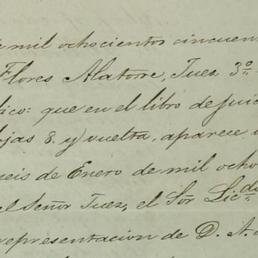 de mil ochocientos cincuen
Flores Alatorre, Juez 3º
lico: que en el libro de juic
ojas 8, y vuelta, aparece
seis de Enero de mil ocho
el Señor Juez, el Sör Licdo
representacion de D. A.